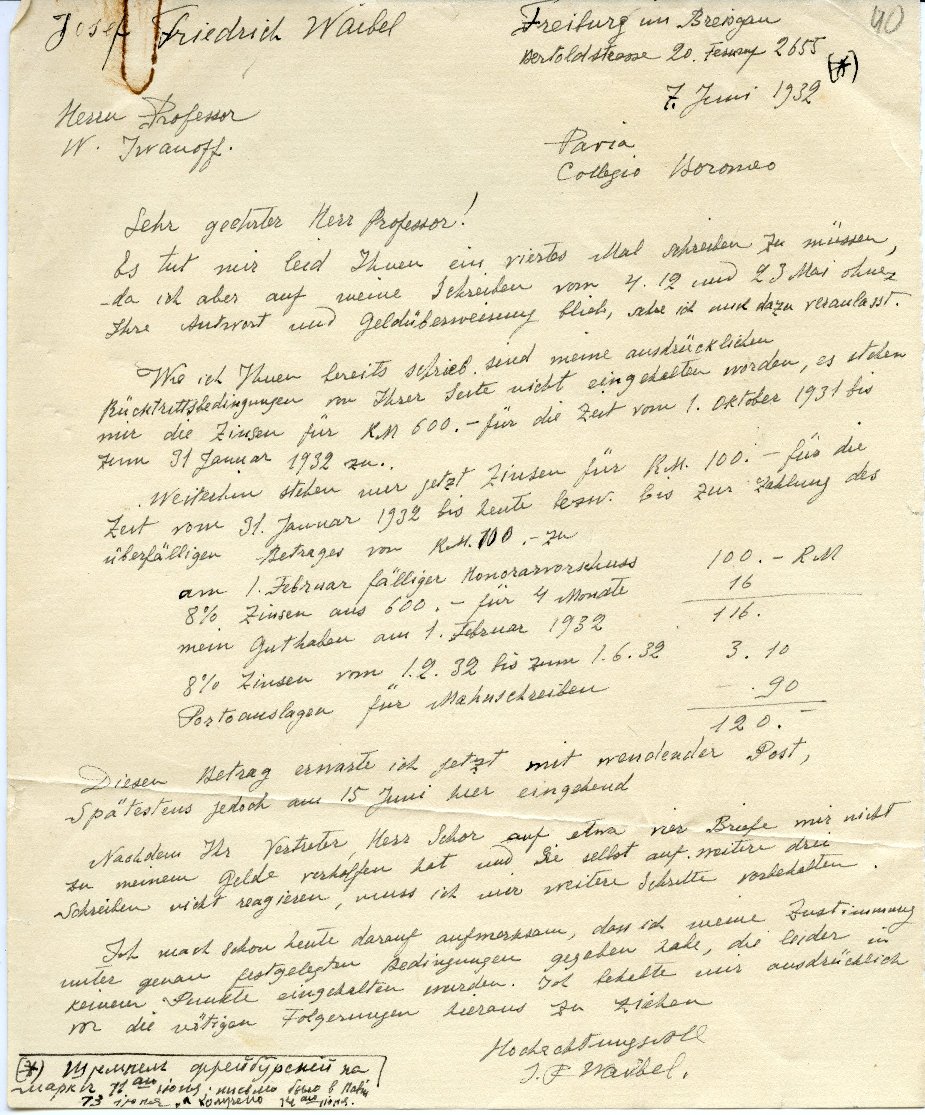 40
Josef Friedrich Waibel
Freiburg im Breisgau
Bertoldstrasse 20. 2655
7. Juni 1932 (*)
Herrn Professor
W. Iwanoff.
Pavia
Collegio Boromeo
Sehr geehrter Herr Professor!
Es tut mir leid Ihnen ein viertes Mal schreiben zu müssen,
da ich aber auf meine Schreiben vom 4. 12 und 23 Mai ohne
Ihre Antwort und Geldüberweisung blieb, sehe ich mich dazu veranlasst.
Wie ich Ihnen bereits schrieb, sind meine ausdrücklichen
Rücktrittsbedingungen von Ihrer Seite nicht eingehalten worden, es stehen
mir die Zinsen für R.M 600.- für die Zeit vom 1. Oktober 1931 bis
zum 31 Januar 1932 zu..
Weiterhin stehen mir jetzt Zinsen für R.M. 100.- für die
Zeit vom 31. Januar 1932 bis heute bezw. bis zur Zahlung des
überfälligen Betrages von R.M. 100.- zu
am 1. Februar fälliger Honorarvorschuss 100.- RM
8% Zinsen aus 600.- für 4 Monate 16
mein Guthaben am 1. Februar 1932 116.
8% Zinsen vom 1.2.32 bis zum 1.6.32 3.10
Portoauslagen für Mahnschreiben -.90
120.-
Diesen Betrag erwarte ich jetzt mit wendender Post,
Spätestens jedoch am 15 Juni hier eingehend
Nachdem Ihr Vertreter, Herr Schor auf etwa vier Briefe mir nicht
zu meinem Gelde verholfen hat und Sie selbst auf weitere drei
Schreiben nicht reagieren, muss ich mir weitere Schritte vorbehalten.
Ich mach schon heute darauf aufmerksam, dass ich meine Zustimmung
unter genau festgelegten Bedingungen gegeben habe, die leider in
keinem Punkte eingehalten wurden. Ich behalte mir ausdrücklich
vor die nötigen Folgerungen hieraus zu ziehen
Hochachtungsvoll
J. F. Waibel.
(*) Штемпель фрейбурский на
марке 11 июня; письмо было в Павии
13 июня, а 14 июня.